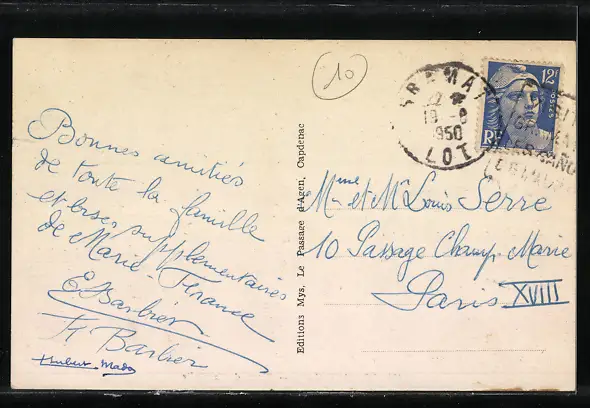 10
Bonnes amitiés
de toute la famille
et bises supplémentaires
de Marie-France
E Barbier
H Barbier
Hubert Mado
Editions Mys, Le Passage d'Agen, Capdenac
GRAMAT
1950
LOT
12F
POSTES
RF
Mme et Mr Louis Serre
10 Passage Champ. Marie
Paris XVIII